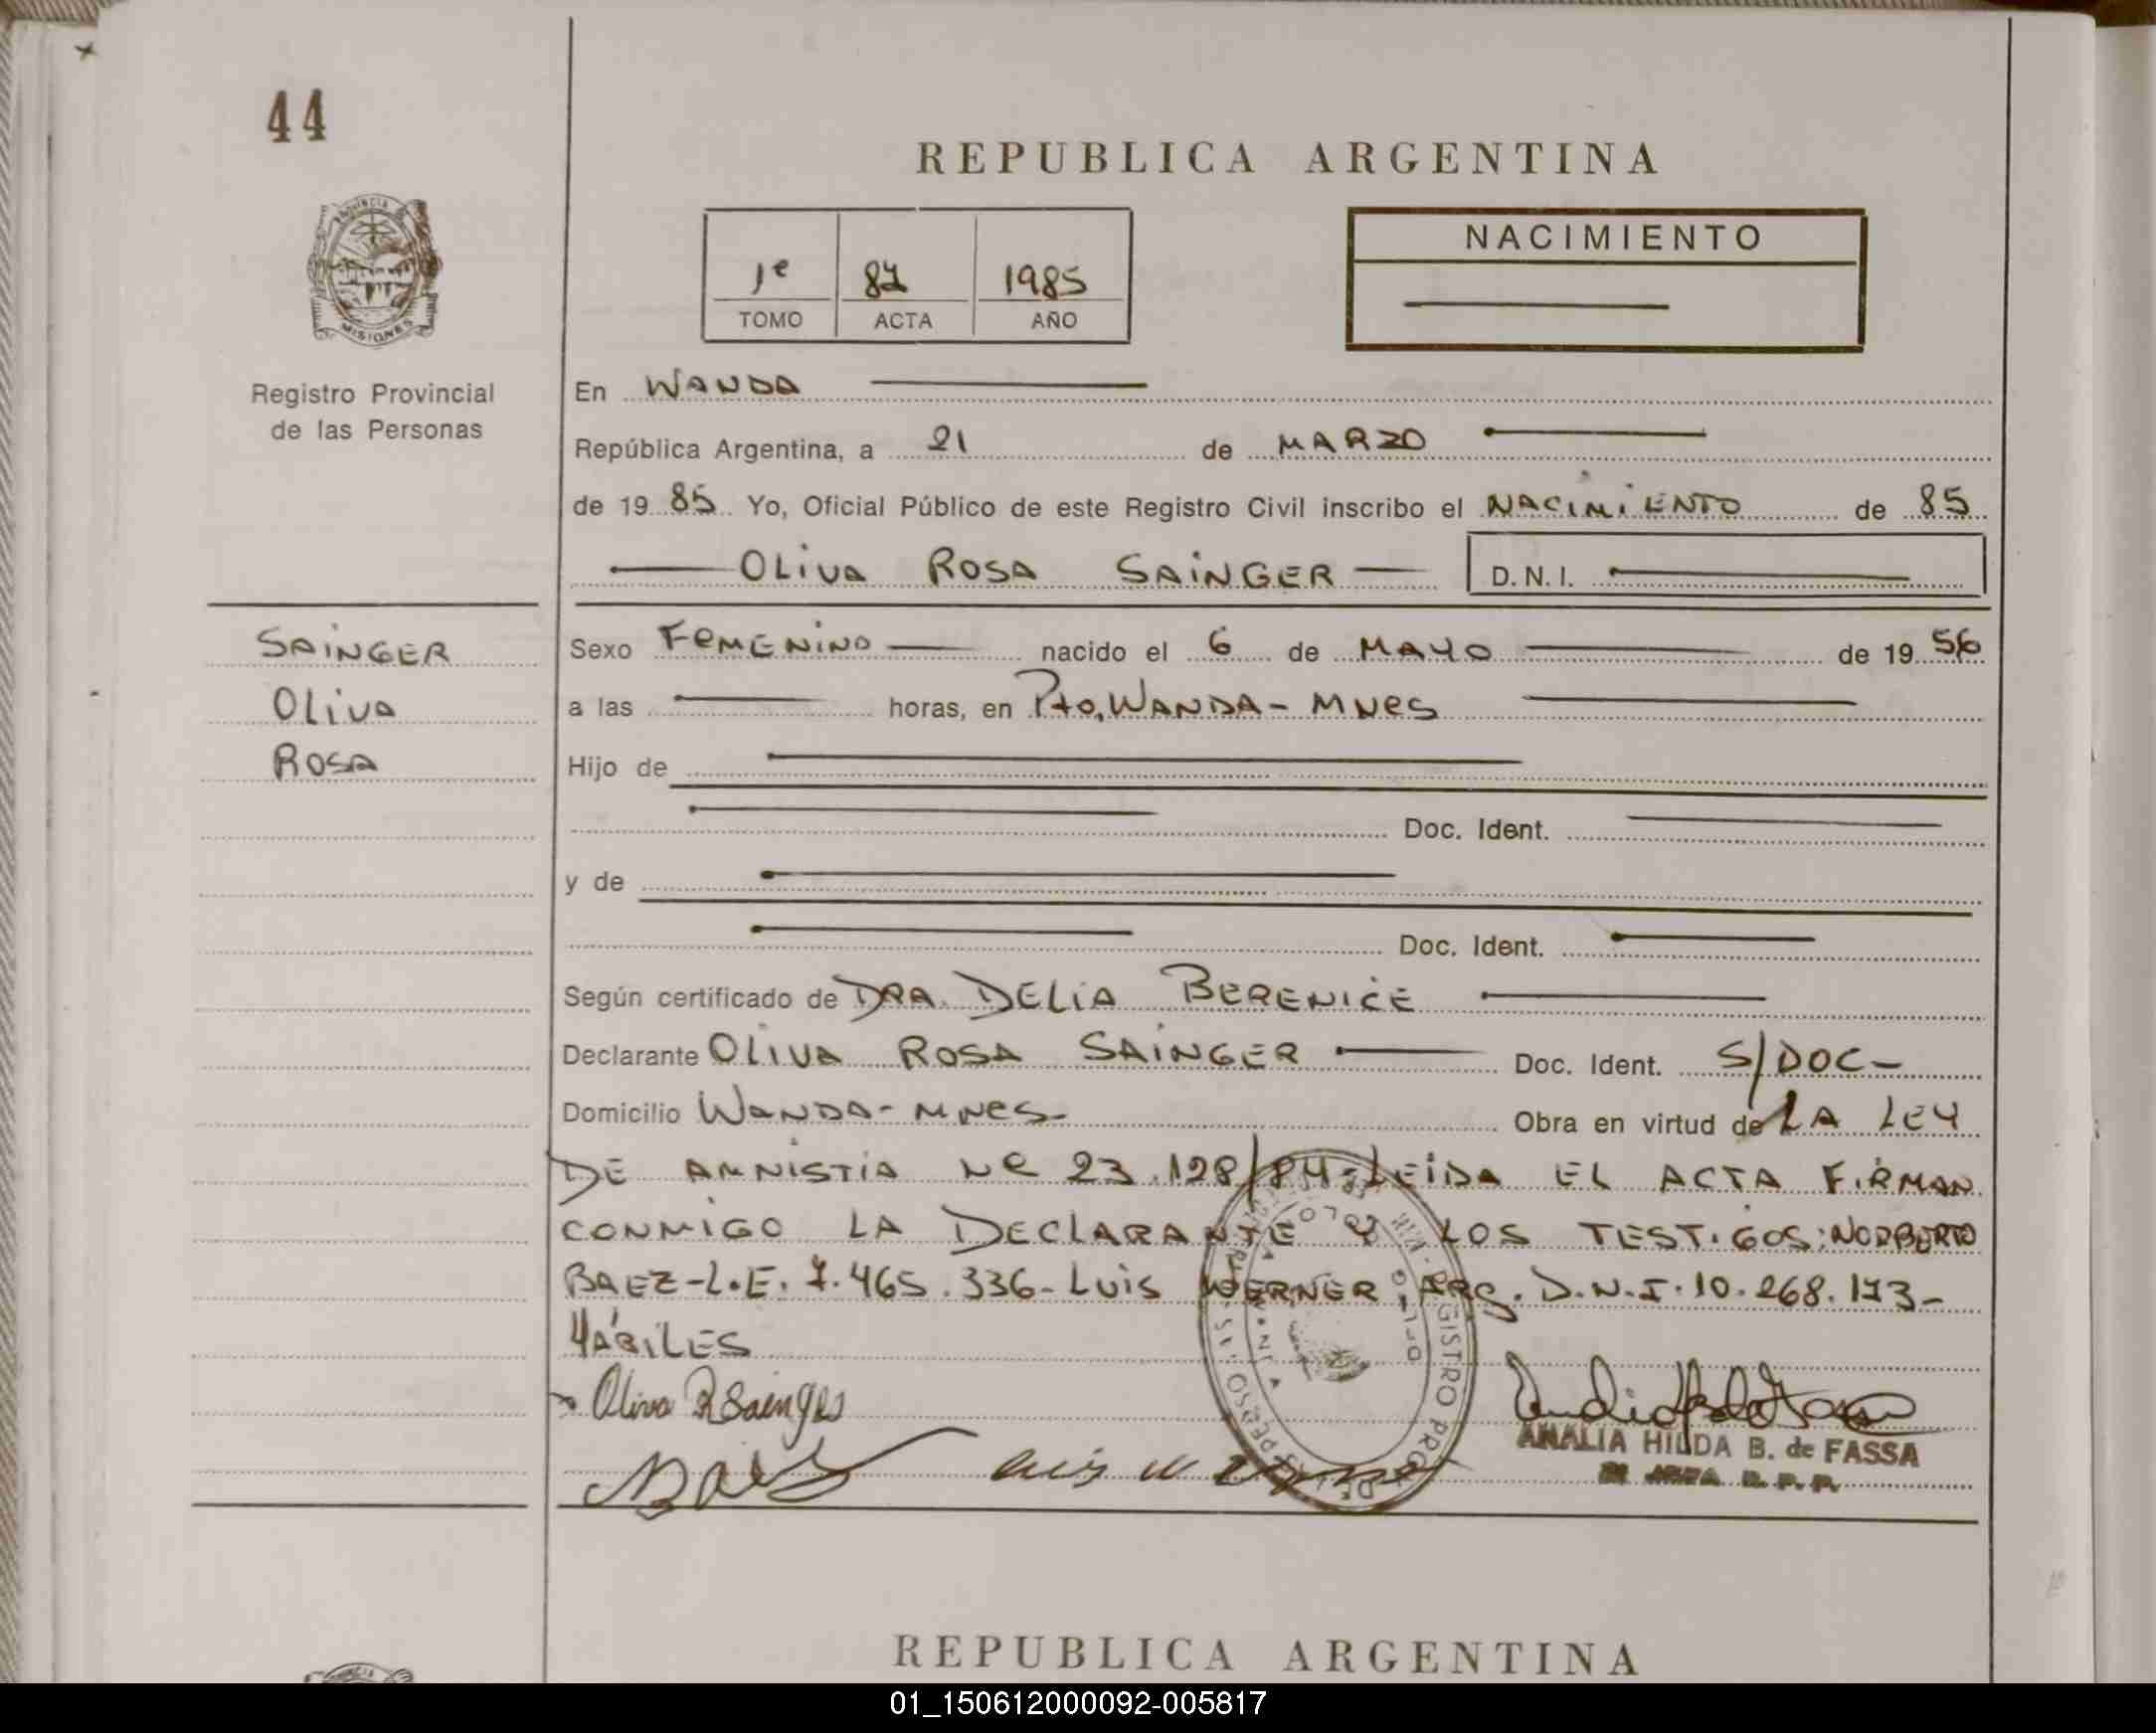 44
REPUBLICA ARGENTINA
PROVINCIA DE
MISIONES
1º 87 1985
TOMO ACTA AÑO
NACIMIENTO
Registro Provincial
de las Personas
En WANDA
República Argentina, a 21 de MARZO
de 19 85 Yo, Oficial Público de este Registro Civil inscribo el NACIMIENTO de 85
OLIVA ROSA SAINGER D.N.I.
SAINGER
OLIVA
ROSA
Sexo FEMENINO nacido el 6 de MAYO de 19 56
a las horas, en Pto, WANDA - MNES
Hijo de
Doc. Ident.
y de
Doc. Ident.
Según certificado de DRA. DELIA BERENICE
Declarante OLIVA ROSA SAINGER Doc. Ident. S/DOC-
Domicilio WANDA - MNES- Obra en virtud de LA LEY
DE AMNISTIA Nº 23.128/84-LEIDA EL ACTA FIRMAN
CONMIGO LA DECLARANTE Y LOS TESTIGOS: NORBERTO
BAEZ-L.E. 7.465.336- LUIS WERNER, ARG. D.N.I. 10.268.173-
HÁBILES
Oliva R Sainger
ANALIA HILDA B. de FASSA
REPUBLICA ARGENTINA
01_150612000092-005817